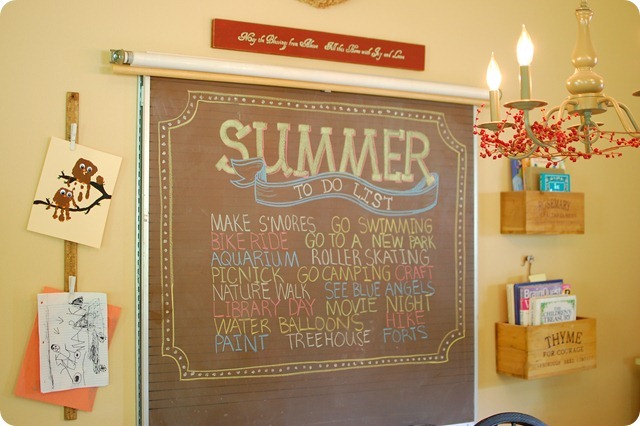 May the Blessing from Above Fill this Home with Joy and Love
SUMMER
TO DO LIST
MAKE S'MORES GO SWIMMING
BIKE RIDE GO TO A NEW PARK
AQUARIUM ROLLER SKATING
PICNICK GO CAMPING CRAFT
NATURE WALK SEE BLUE ANGELS
LIBRARY DAY MOVIE NIGHT
WATER BALLOONS HIKE
PAINT TREEHOUSE FORTS
ROSEMARY
THE CHILDREN'S TREASURY
THYME
FOR COURAGE